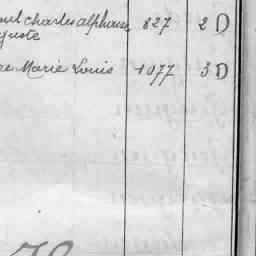 charles alphonse 827 2 D
Marie Louis 1077 3 D